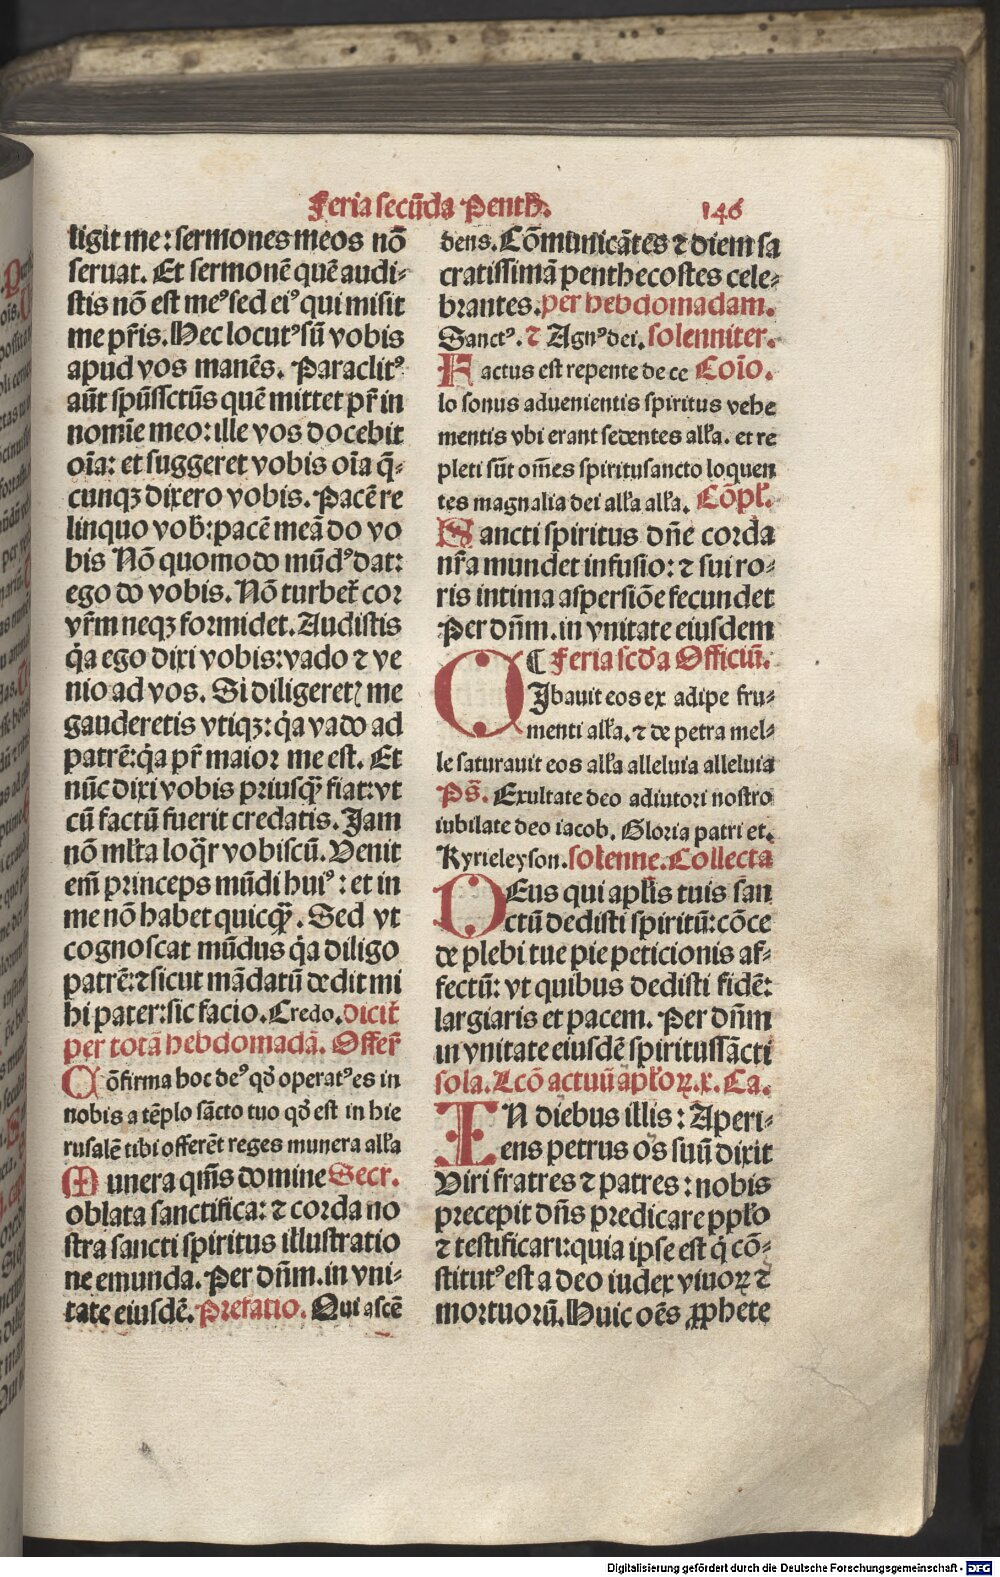 Feria secūda Penth̄.
146
ligit me: sermones meos nō
seruat. Et sermonē quē audi-
stis nō est meꝰ sed eiꝰ qui misit
me pr̄is. Hec locutꝰ sū vobis
apud vos manēs. Paraclitꝰ
aūt spūssctūs quē mittet pr̄ in
nomīe meo: ille vos docebit
oīa: et suggeret vobis oīa q̄-
cunqꝫ dixero vobis. Pacē re
linquo vob̄: pacē meā do vo
bis Nō quomodo mūdꝰ dat:
ego do vobis. Nō turbet̄ cor
vr̄m neqꝫ formidet. Audistis
q̇a ego dixi vobis: vado ⁊ ve
nio ad vos. Si diligeretꝭ me
gauderetis vtiqꝫ: q̇a vado ad
patrē: q̇a pr̄ maior me est. Et
nūc dixi vobis priusq̄ꝫ fiat: vt
cū factū fuerit credatis. Jam
nō ml̄ta loq̄r vobiscū. Venit
em̄ princeps mūdi huiꝰ: et in
me nō habet quicq̄ꝫ. Sed vt
cognoscat mūdus q̇a diligo
patrē: ⁊ sicut mādatū dedit mi
hi pater: sic facio. Credo. dicit̄
per totā hebdomadā. Offer̄
Cōfirma hoc deꝰ qd̄ operatꝰ es in
nobis a tēplo sācto tuo qd̄ est in hie
rusalē tibi offerēt reges munera all̄a
Munera qm̄s domine Secr.
oblata sanctifica: ⁊ corda no
stra sancti spiritus illustratio
ne emunda. Per dn̄m. in vni-
tate eiusdē. Prefatio. Qui ascē
dens. Cōmunicātes ⁊ diem sa
cratissimā penthecostes cele-
brantes. per hebdomadam.
Sanctꝰ. ⁊ Agnꝰ dei. solenniter.
Factus est repente de ce Coīo.
lo sonus aduenientis spiritus vehe
mentis vbi erant sedentes all̄a. et re
pleti sūt om̄es spiritusancto loquen
tes magnalia dei all̄a all̄a. Cōpl̄.
Sancti spiritus dn̄e corda
nr̄a mundet infusio: ⁊ sui ro-
ris intima aspersiōe fecundet
Per dn̄m. in vnitate eiusdem
¶ Feria scd̄a Officiū.
CJbauit eos ex adipe fru-
menti all̄a. ⁊ de petra mel-
le saturauit eos all̄a alleluia alleluia
Ps̄. Exultate deo adiutori nostro
iubilate deo iacob. Gloria patri et.
Kyrieleyson. solenne. Collecta
DEus qui apl̄is tuis san
ctū dedisti spiritū: cōce
de plebi tue pie peticionis af-
fectū: vt quibus dedisti fidē:
largiaris et pacem. Per dn̄m
in vnitate eiusdē spiritussācti
sola. Lcō actuū apl̄oꝝ. x. Ca.
IN diebus illis: Aperi-
ens petrus os suū dixit
Viri fratres ⁊ patres: nobis
precepit dn̄s predicare ppl̄o
⁊ testificari: quia ipse est q̇ cō-
stitutꝰ est a deo iudex viuoꝝ ⁊
mortuorū. Huic oēs ꝓphete
Digitalisierung gefördert durch die Deutsche Forschungsgemeinschaft - DFG